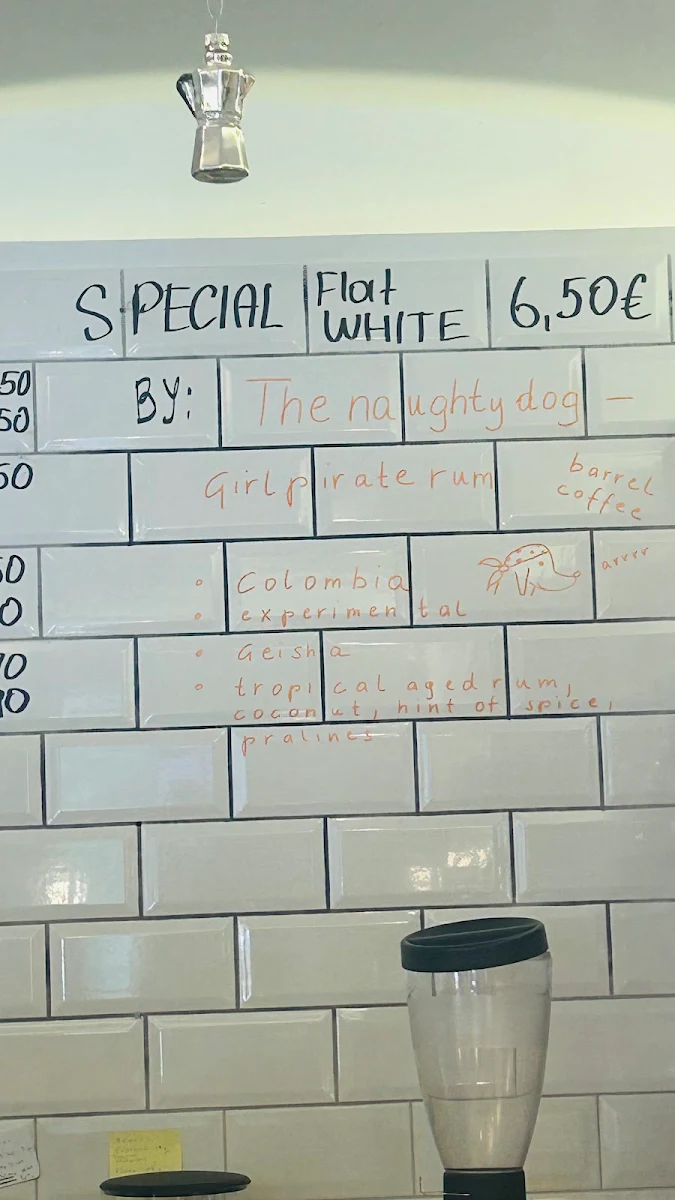 SPECIAL Flat WHITE 6,50€
50
50
BY: The naughty dog –
50
Girl pirate rum barrel coffee
• Colombia
arrrr
• experimental
• Geisha
• tropical aged rum,
coconut, hint of spice,
pralines